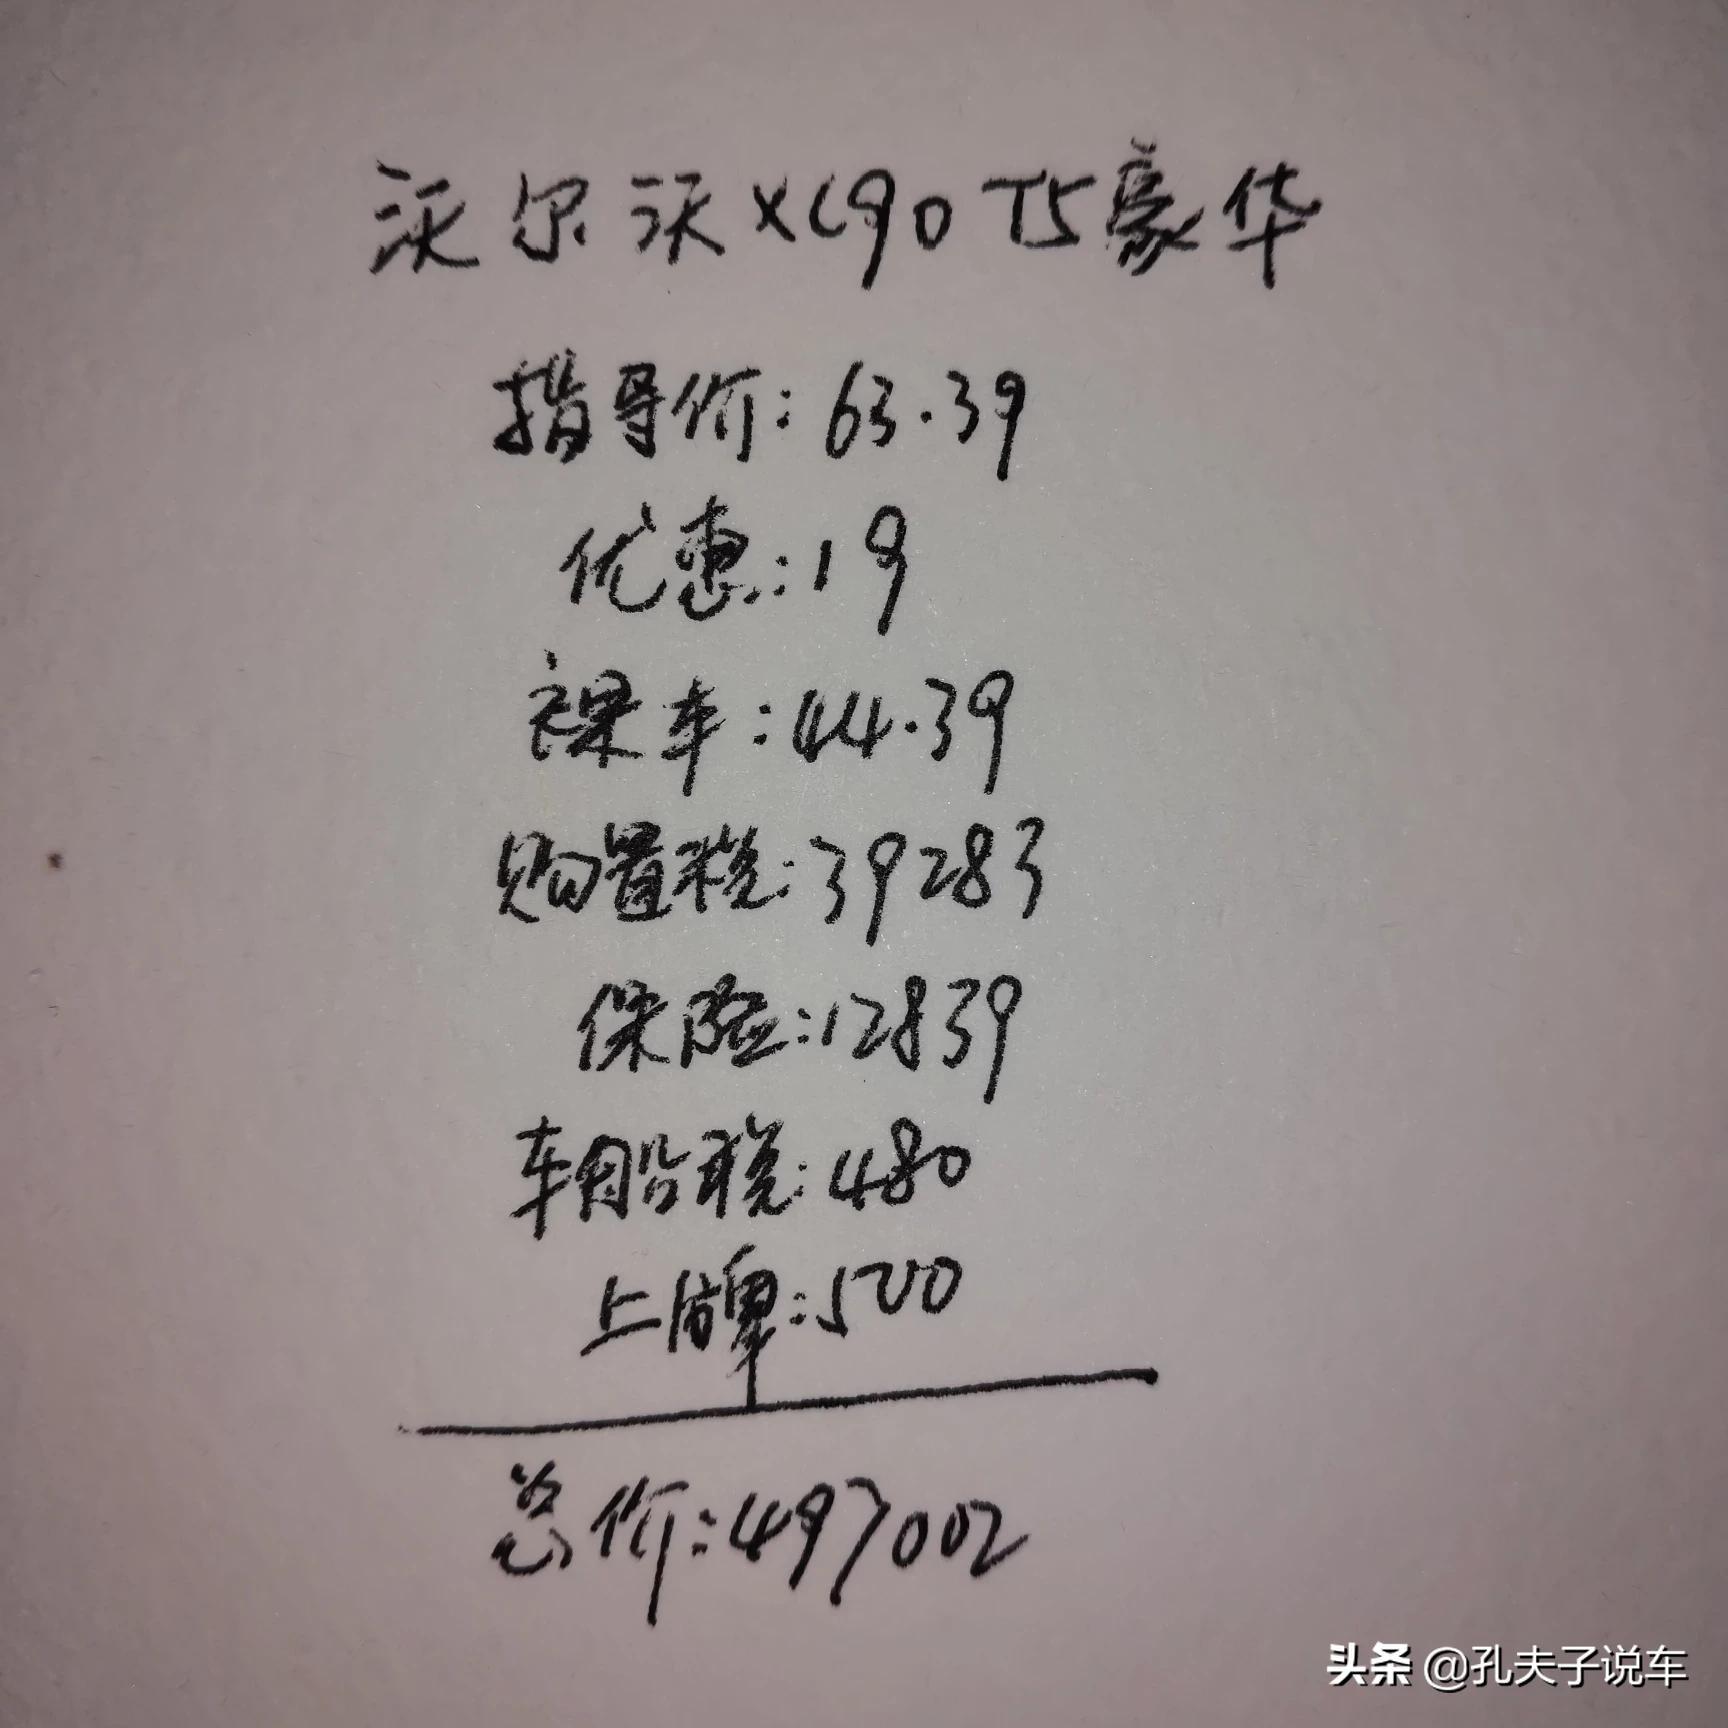 沃尔沃XC90 T5豪华
指导价:63.39
优惠:19
裸车:44.39
购置税:39283
保险:12839
车船税:480
上牌:500
总价:497002
头条 @孔夫子说车